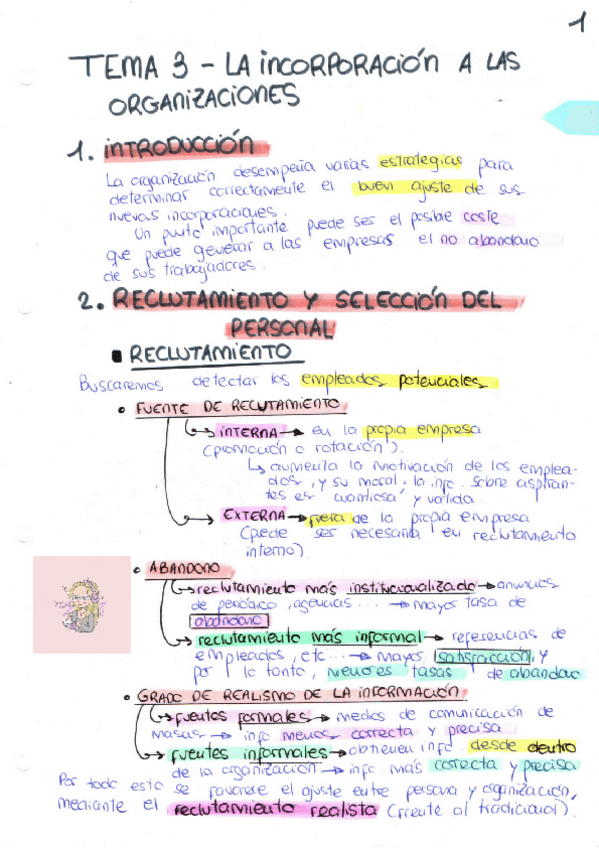 1
TEMA 3 - LA INCORPORACIÓN A LAS
ORGANIZACIONES
1. INTRODUCCIÓN
La organización desempeña varias estrategias para
determinar correctamente el buen ajuste de sus
nuevas incorporaciones.
Un punto importante puede ser el posible coste
que puede generar a las empresas el no abandono
de sus trabajadores.
2. RECLUTAMIENTO Y SELECCIÓN DEL
PERSONAL
■ RECLUTAMIENTO
Buscaremos detectar los empleados potenciales
• FUENTE DE RECLUTAMIENTO
↳ INTERNA → en la propia empresa
(promoción o rotación).
↳ aumenta la motivación de los emplea-
dos, y su moral, la info. sobre aspiran-
tes es cuantiosa y válida.
↳ EXTERNA → fuera de la propia empresa
(puede ser necesaria en reclutamiento
interno)
• ABANDONO
↳ reclutamiento más institucionalizado → anuncios
de periódico, agencias... → mayor tasa de
abandono
↳ reclutamiento más informal → referencias de
empleados, etc... → mayor satisfacción y
por lo tanto, menores tasas de abandono
• GRADO DE REALISMO DE LA INFORMACIÓN
↳ fuentes formales → medios de comunicación de
masas → info menos correcta y precisa
↳ fuentes informales → obtienen info. desde dentro
de la organización → info más correcta y precisa
Por todo esto se favorece el ajuste entre persona y organización,
mediante el reclutamiento realista (frente al tradicional).